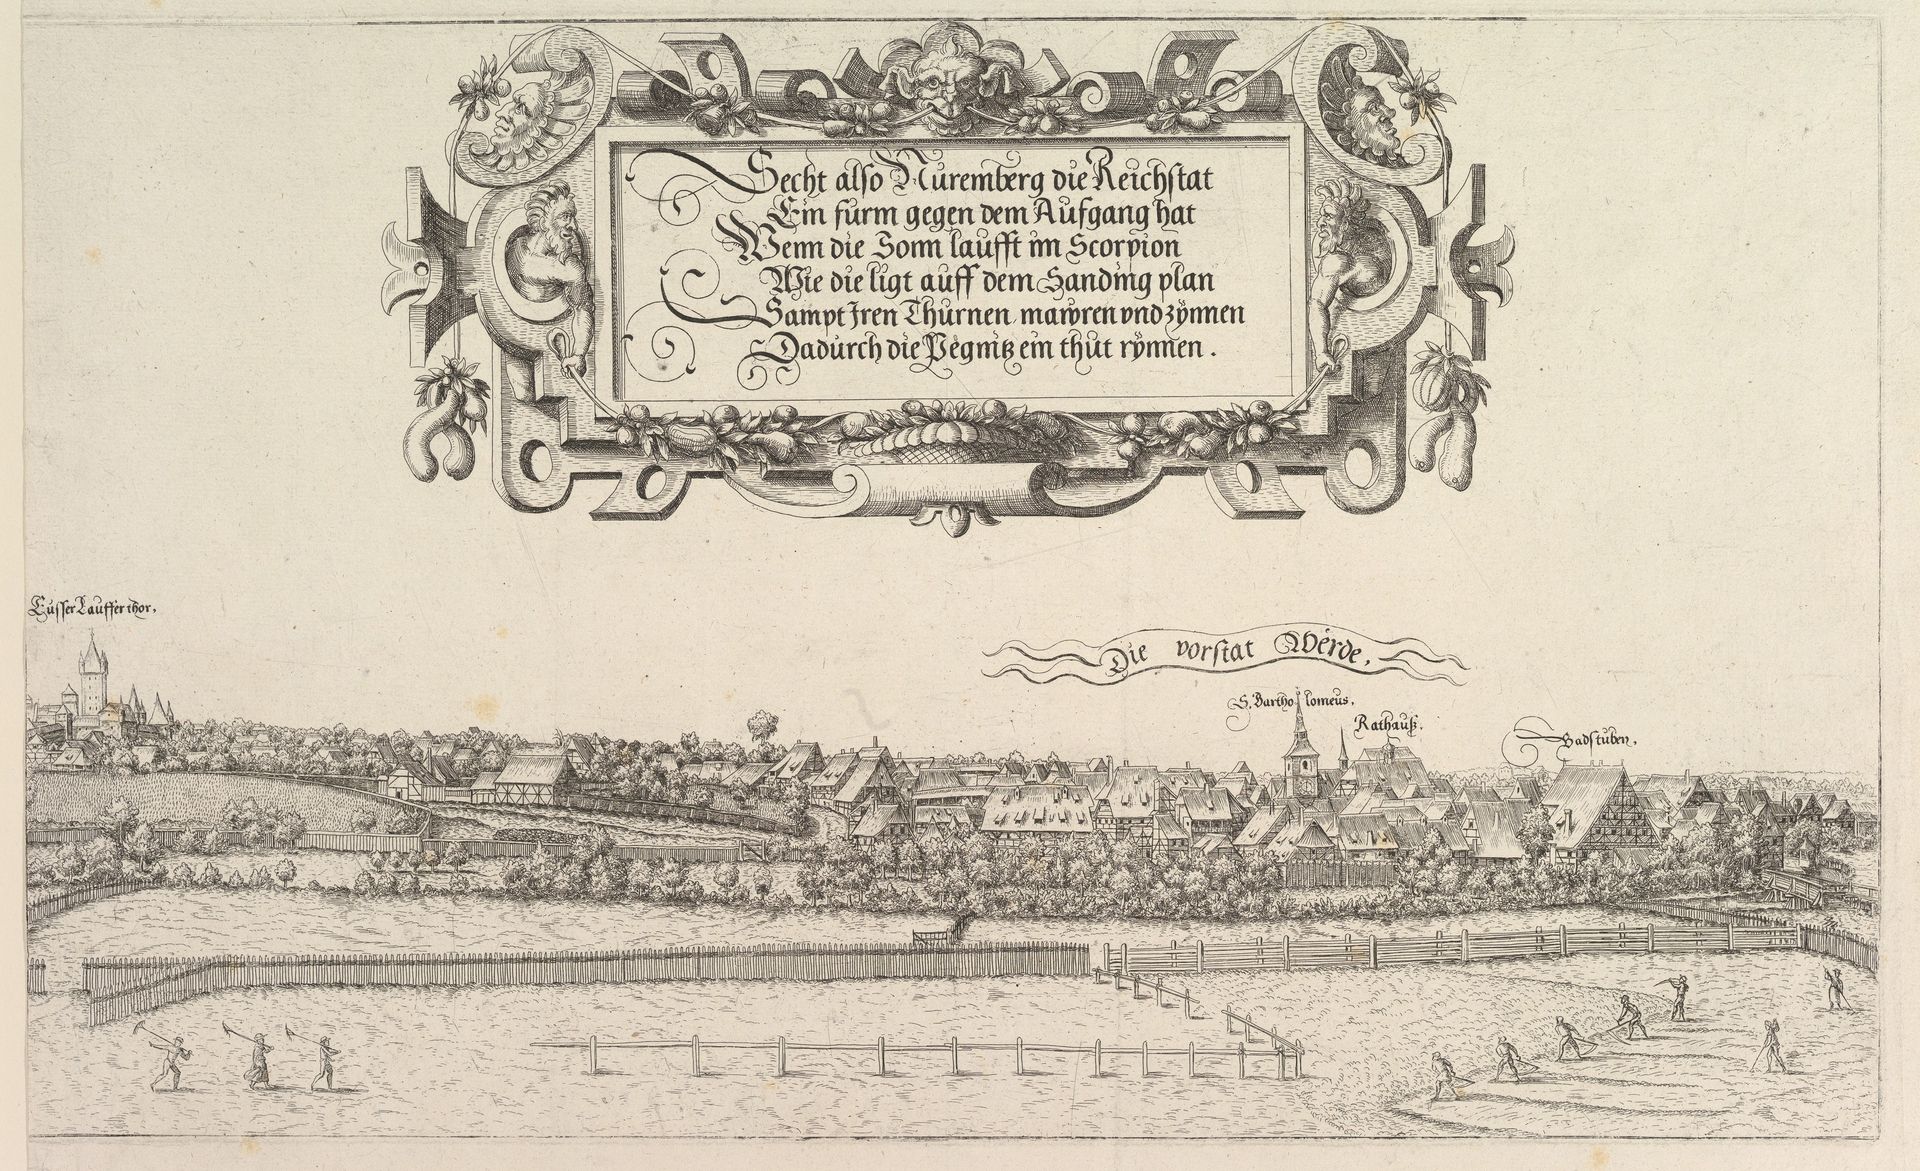 Secht also Nuremberg die Reichstat
Ein furm gegen dem Aufgang hat
Wenn die Sonn laufft im Scorpion
Wie die ligt auff dem Sanding plan
Sampt Iren Thurnen mawren vnd zÿnnen
Dadurch die Pegnitz ein thut rÿnnen.
Eusser Lauffer thor,
Die vorstat Wérde,
S. Bartholomeus,
Rathauß.
Badstuben,